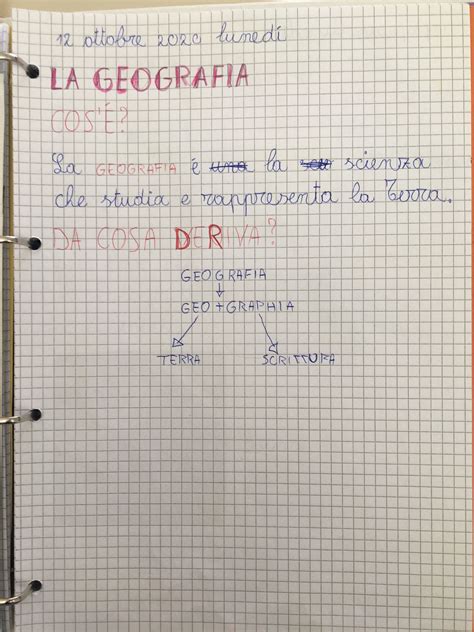 12 ottobre 2020 lunedí
LA GEOGRAFIA
COS'É?
La GEOGRAFIA é una la scienza
che studia e rappresenta la Terra.
DA COSA DERIVA?
GEOGRAFIA
GEO + GRAPHIA
TERRA SCRITTURA